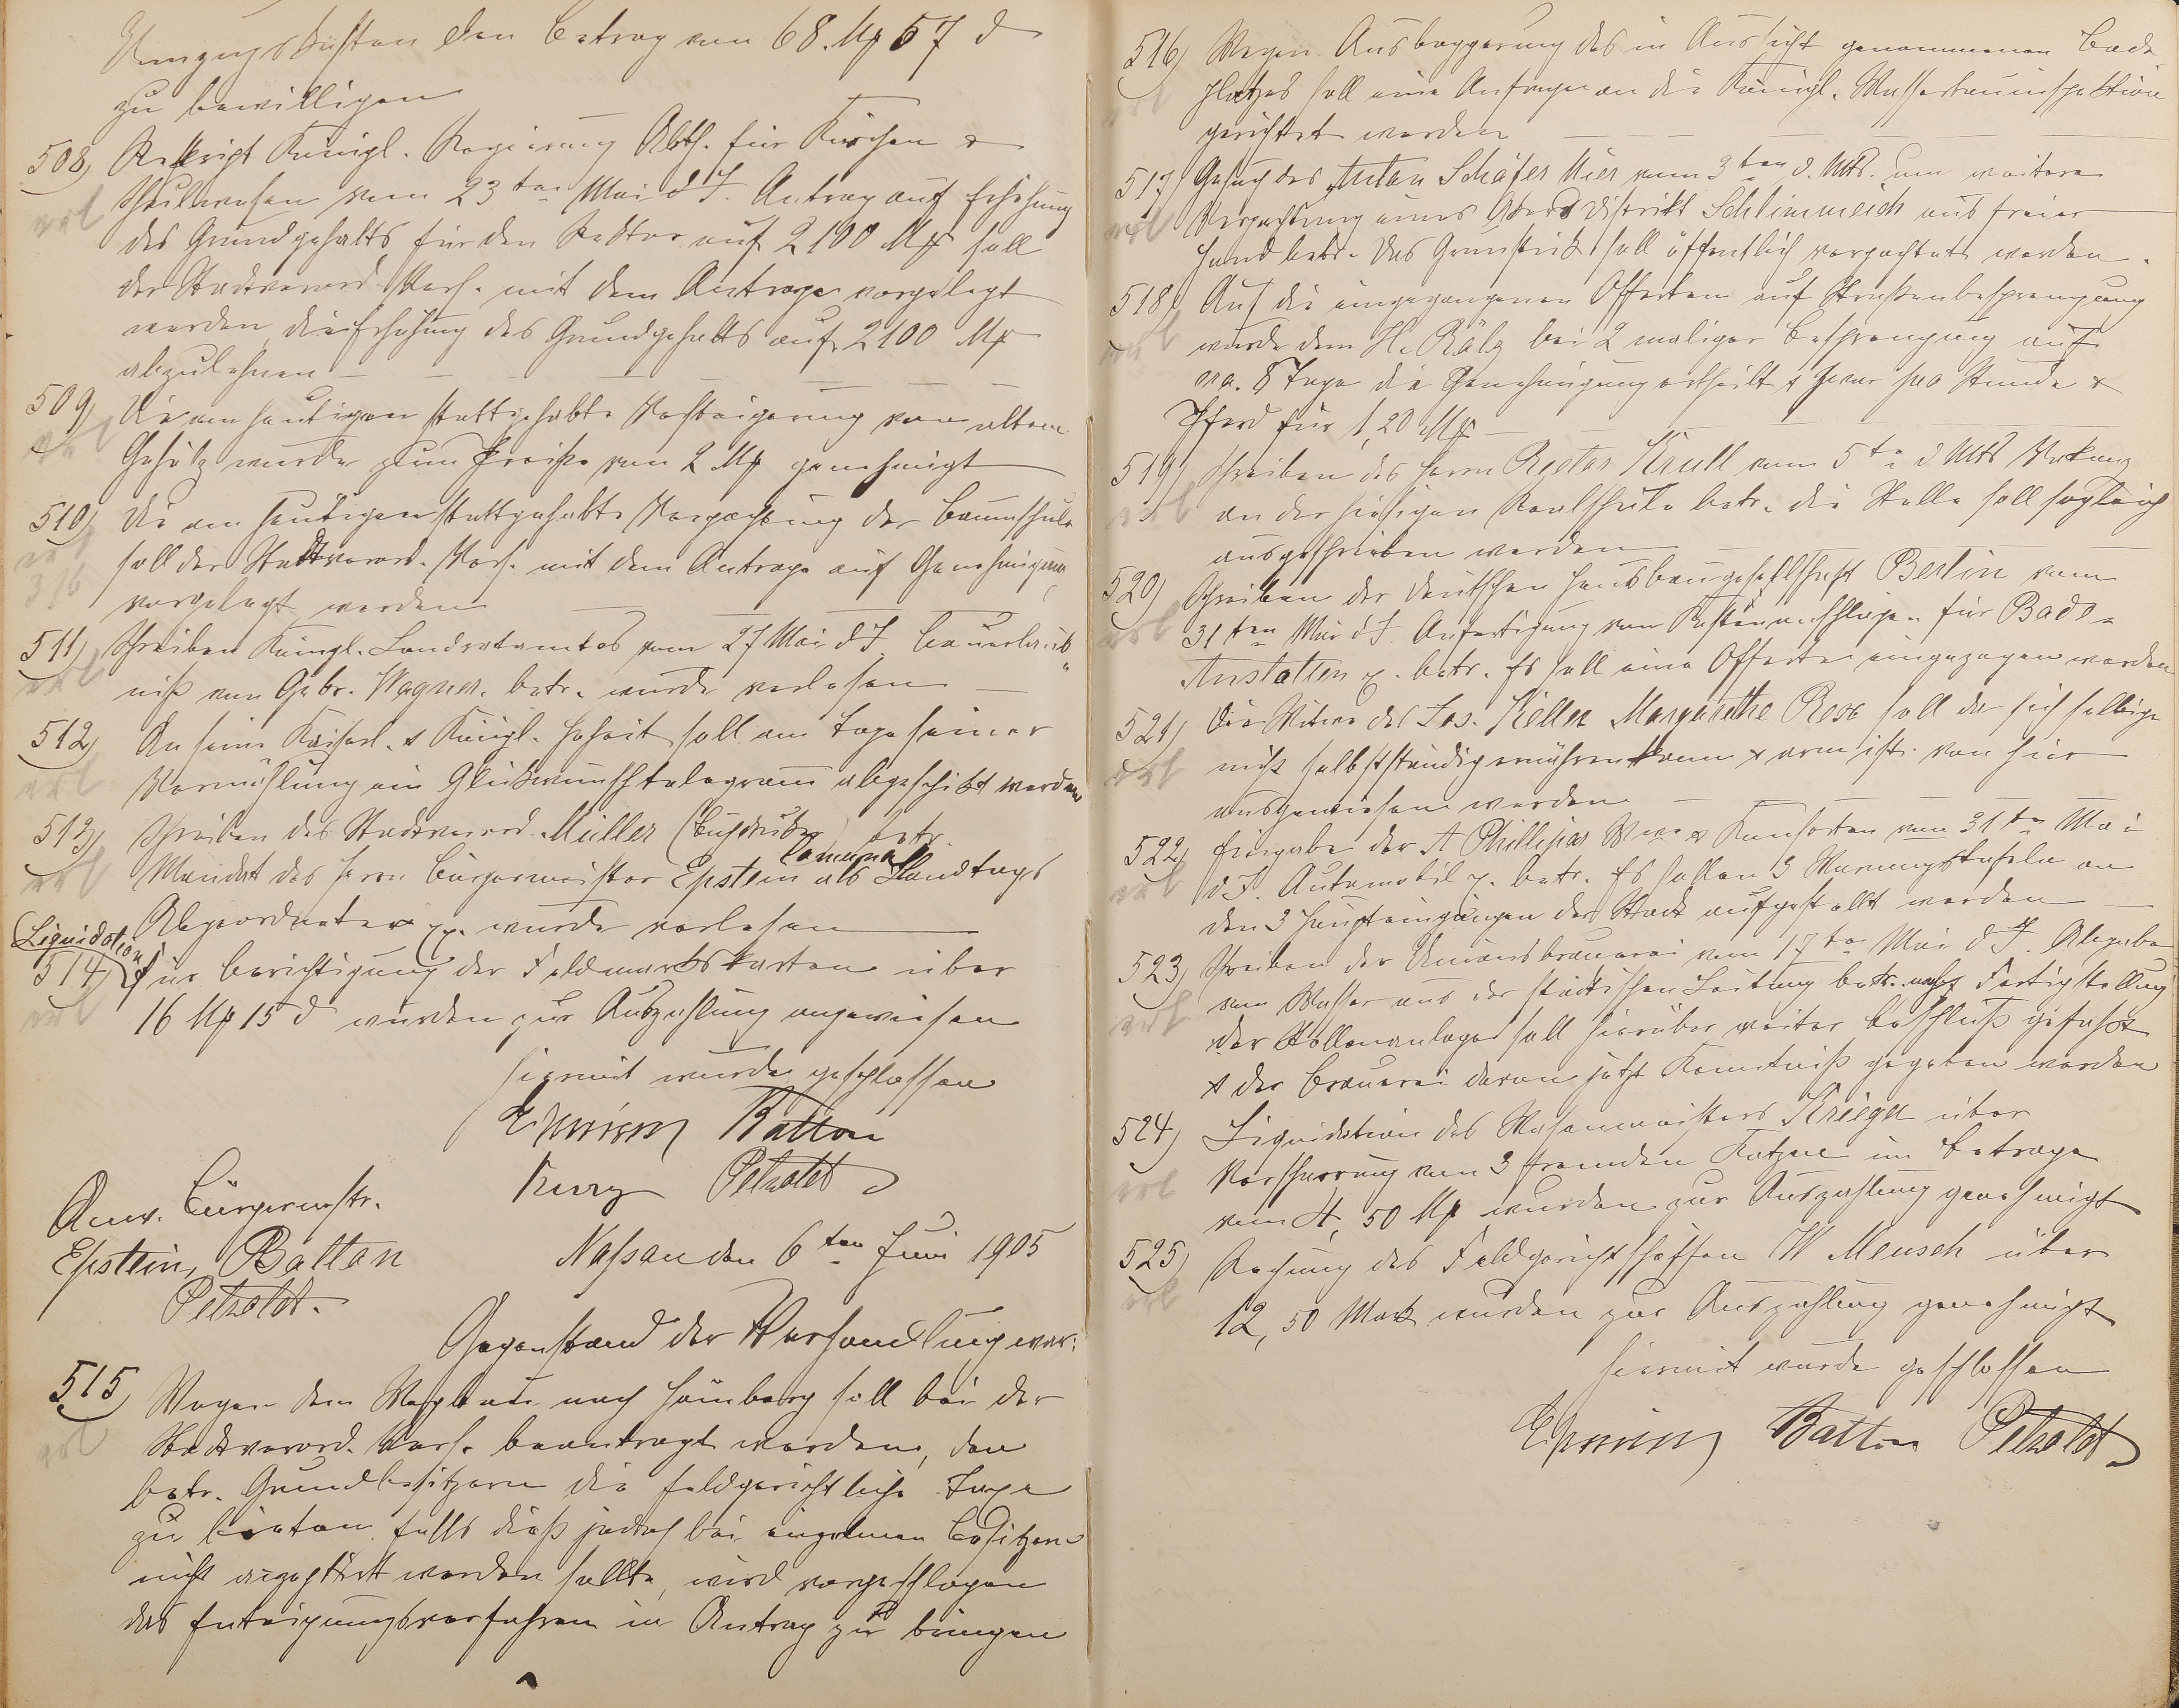 Umzugskosten den Betrag von 68. Mk 57 d
zu bewilligen
508) Reskript Königl. Regierung Abth. für Kirchen &
erl
Schulwesen vom 23ten Mai d J. Antrag auf Erhöhung
des Grundgehalts für den Rektor auf 2100 Mk soll
der Stadtverord. Vers. mit dem Antrage vorgelegt
werden, die Erhöhung des Grundgehalts auf 2100 Mk
abzulehnen
509) Die am heutigen stattgehabte Versteigerung von altem
erl
Gehölz wurde zum Preise von 2 Mk genehmigt
510) Die am heutigen stattgehabte Verpachtung der Baumschule
erl
soll der Stadtverord. Vers. mit dem Antrage auf Genehmigung
vorgelegt werden
511) Schreiben Königl. Landratamtes vom 27 Mai d J. Bauerlaub
erl
niß von Gebr. Wagner. betr. wurde verlesen
512) An seine Kaiserl. & Königl. Hoheit soll am Tage seiner
erl
Vermählung ein Glückwunschtelegramm abgeschickt werden
513) Schreiben des Stadtverord. Müller (Buchdrucker) betr.
erl
Mandat des Herrn Bürgermeister Epstein als Comunal Landtags
Abgeordneter pp. wurde verlesen
Liquidation
514) für Berichtigung der Feldmarkskarten über
erl
16 Mk 15 d wurden zur Auszahlung angewiesen
Hiermit wurde geschlossen
Epstein Balton
Kurz Petzoldt
Anw. Bürgermstr.
Epstein, Balton
Petzoldt.
Nassau den 6ten Juni 1905
Gegenstand der Verhandlung war:
515) Wegen dem Wegbau nach Hömberg soll bei der
erl
Stadtverord. Vers. beantragt werden, den
betr. Grundbesitzern die feldgerichtliche Taxe
zu bieten, falls dieß jedoch bei einzelnen Besitzern
nicht acceptirt werden sollte, wird vorgeschlagen
das Enteignungsverfahren in Antrag zu bringen
516) Wegen Ausbaggerung des in Aussicht genommenen Bade
erl
platzes soll eine Anfrage an die Königl. Wasserbauinspektion
gerichtet werden
517) Gesuch des Anton Schäfer Hier vom 3ten d. Mts. um weitere
erl
Verpachtung eines Ackers Distrikt Schlimmeich aus freier
Hand betr. Das Grundstück soll öffentlich verpachtet werden.
518) Auf die eingegangenen Offerten auf Straßenbesprengung
erl
wurde dem H. Bälz bei 2 maliger Besprengung auf
ca. 8 Tage die Genehmigung ertheilt & zwar pro Stunde &
Pferd für 1,20 Mk
519) Schreiben des Herrn Rector Krull vom 5ten d Mts Vakanz
erl
an der hiesigen Realschule betr. die Stelle soll sogleich
ausgeschrieben werden
520) Schreiben der deutschen Hausbaugesellschaft Berlin vom
erl
31ten Mai d J. Anfertigung von Kostenanschlägen für Bade-
Anstalten p. betr. Es soll eine Offerte eingezogen werden
521) Die Witwe des Jos. Keller Margarethe Rose soll da sich selbige
erl
nicht selbstständig ernähren kann & arm ist. von hier
ausgewiesen werden
522) Eingabe der A Phillipar Wwe & Konsorten vom 31ten Mai
erl
d.J. Automobil p. betr. Es sollen 3 Warnungstafeln an
den 3 Haupteingängen der Stadt aufgestellt werden
523) Schreiben der Unionsbrauerei vom 17ten Mai d J. Abgabe
erl
von Wasser aus der städtischen Leitung betr. nach Fertigstellung
der Stollenanlage soll hierüber weiter Beschluß gefaßt
& der Brauerei davon jetzt Kenntniß gegeben werden
524) Liquidation des Wasenmeisters Krieger über
erl
Verscharrung von 3 fremden Katzen im Betrage
von 4,50 Mk wurden zur Auszahlung genehmigt
525) Rechnung des Feldgerichtschöffen W Mensch über
erl
12,50 Mark wurden zur Auszahlung genehmigt
Hiermit wurde geschlossen
Epstein Balton Petzoldt